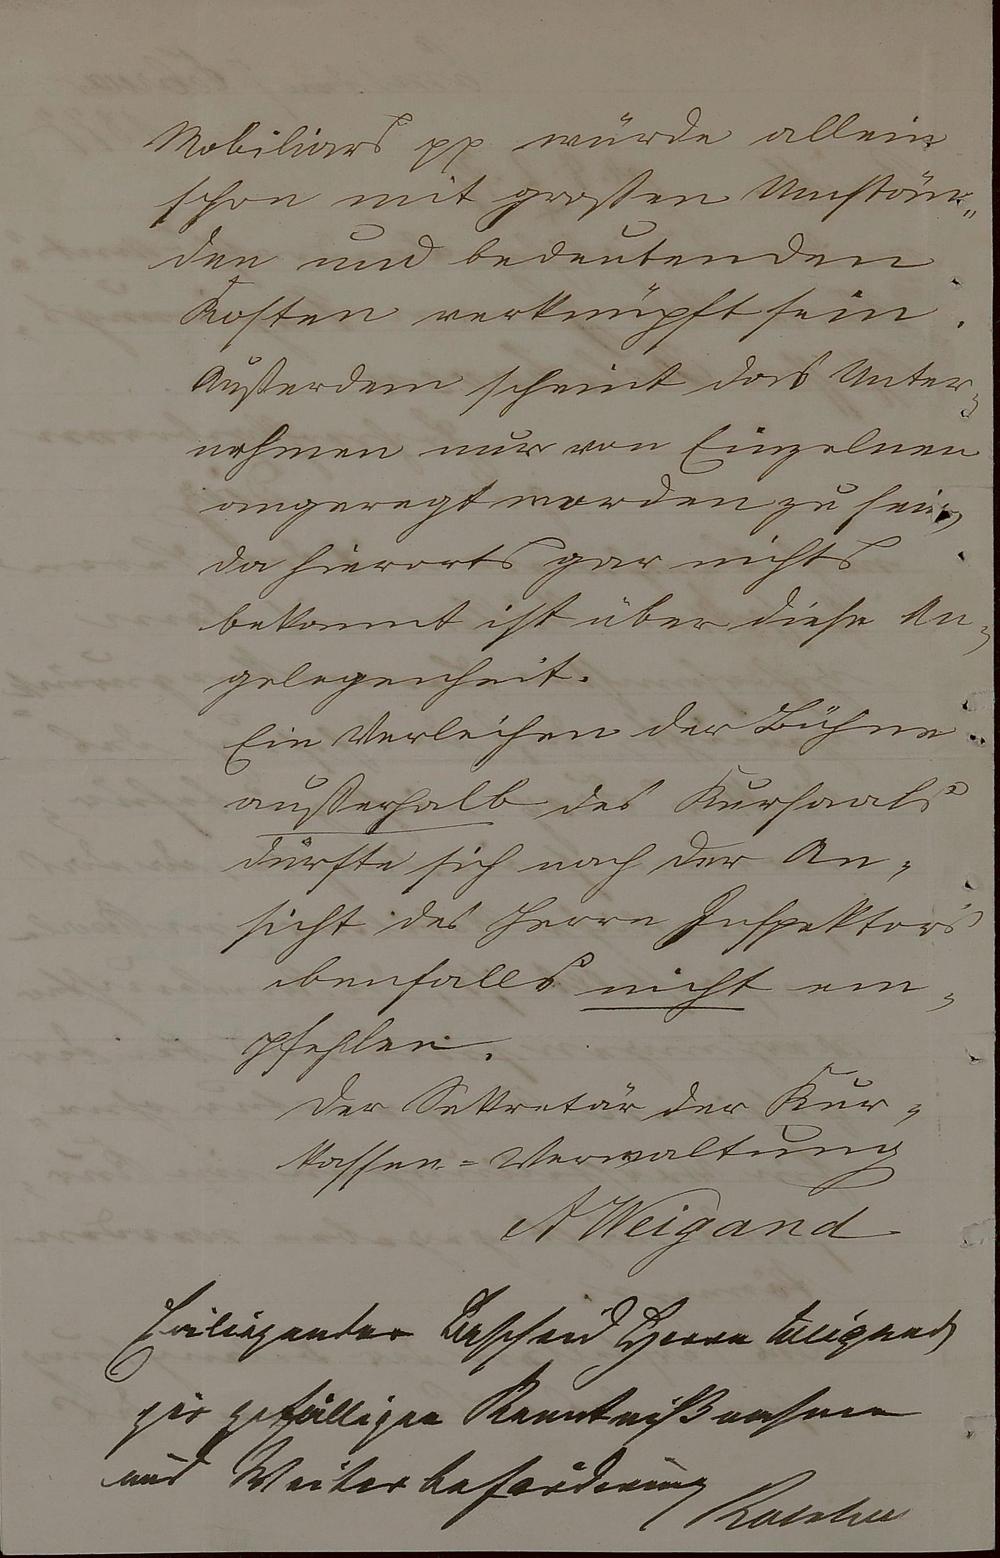 Mobiliars pp würde allein
schon mit großen Umstän„
den und bedeutenden
Kosten verknüpft sein.
Außerdem scheint das Unter„
nehmen nur von Einzelnen
angeregt worden zu sein,
da hierorts gar nichts
bekannt ist über diese An„
gelegenheit.
Ein Verleihen der Bühne
außerhalb des Kursaals
dürfte sich nach der An„
sicht des Herrn Inspektors
ebenfalls nicht em„
pfehlen.
Der Sekretär der Kur„
kassen=Verwaltung
A Weigand
Beschied Herrn Weigand
zur gefälligen Kenntnißnahme
und Weiterbeförderung